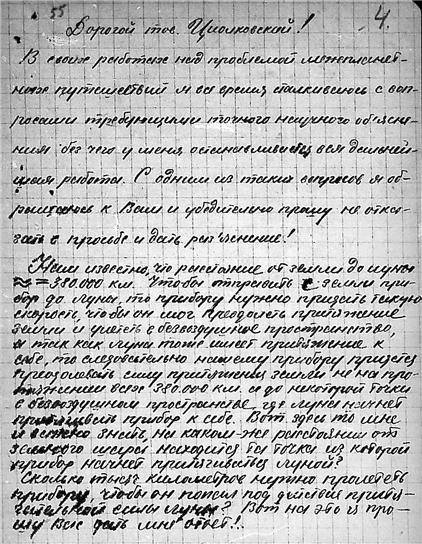 55
4.
Дорогой тов. Циолковский!
В своих работах над проблемой межпланет-
ных путешествий я все время сталкиваюсь с воп-
росами требующими точного научного об'ясне-
ния без чего у меня останавливается вся дальней-
шая работа. С одним из таких вопросов я об-
ращаюсь к Вам и убедительно прошу не отка-
зать в просьбе и дать раз'яснение!
Нам известно, что расстояние от земли до луны
≈ = 380.000 км. Чтобы отправить с земли при-
бор до луны, то прибору нужно придать такую
скорость, чтобы он мог преодолеть притяжение
земли и улететь в безвоздушное пространство,
а так как луна тоже имеет притяжение к
себе, то следовательно нашему прибору придется
преодолевать силу притяжения земли не на про-
тяжении всех 380.000 км. а до некоторой точки
в безвоздушном пространстве, где луна начнет
притягивать прибор к себе. Вот здесь то мне
и важно знать, на каком-же расстоянии от
земного шара находится та точка из которой
прибор начнет притягиваться луной?
Сколько тысяч километров нужно пролететь
прибору, чтобы он попал под действие притя-
гательной силы луны? Вот на это я про-
шу Вас дать мне ответ!.